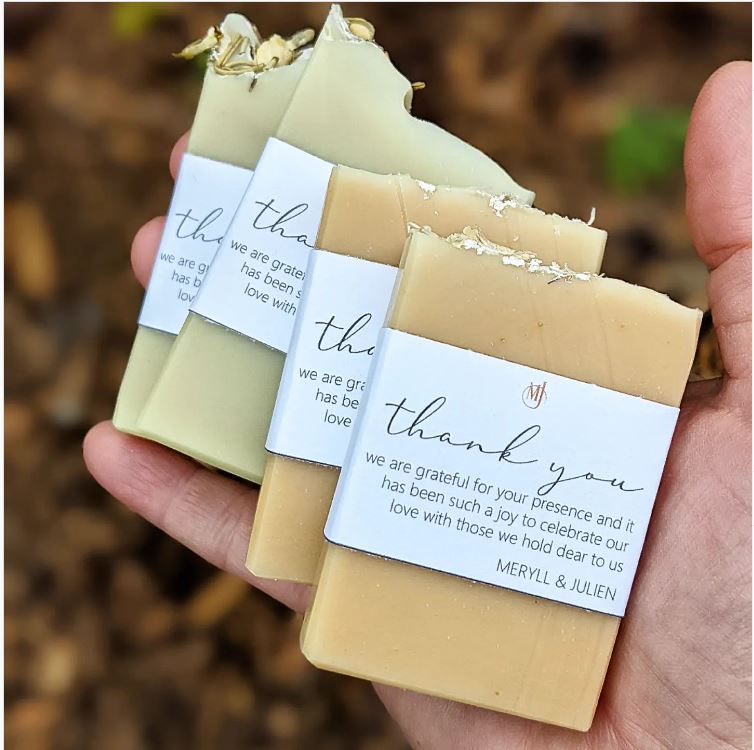 MJ
thank you
we are grateful for your presence and it
has been such a joy to celebrate our
love with those we hold dear to us
MERYLL & JULIEN
tha
we are gra
has be
love
tha
we are gratef
has been s
love with
th
we are g
has b
lov